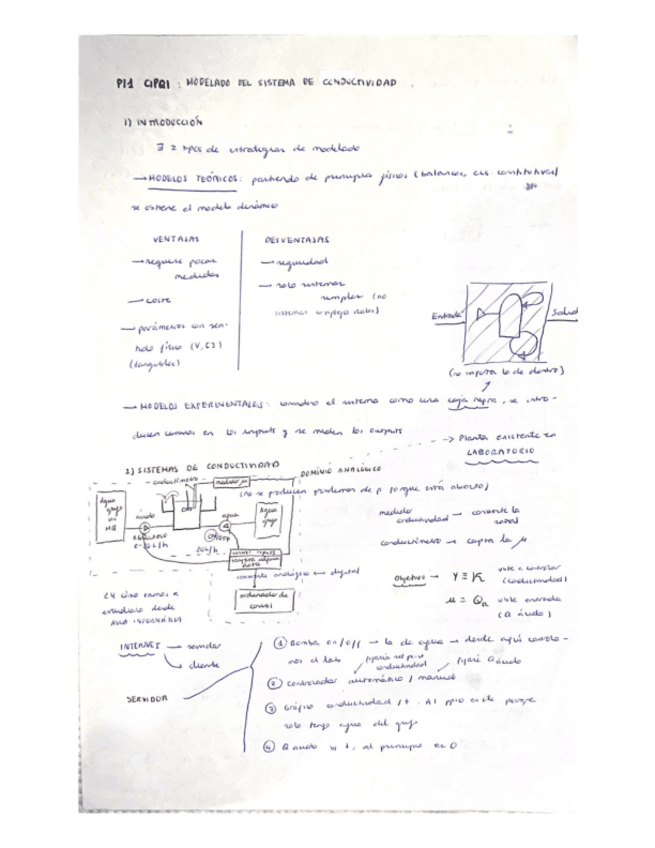 PI1 CIPQI : MODELADO DEL SISTEMA DE CONDUCTIVIDAD
1) INTRODUCCIÓN
∃ 2 tipos de estrategias de modelado
→ MODELOS TEÓRICOS: partiendo de principios físicos (balances, ecs constitutivas)
se obtiene el modelo dinámico
VENTAJAS
→ requiere pocas
medidas
→ coste
→ parámetros con sen-
tido físico (V, [ ])
(tangibles)
DESVENTAJAS
→ seguridad
→ solo sistemas
simples (no
sistemas complejos reales)
Entrada
Salida
(no importa lo de dentro)
→ MODELOS EXPERIMENTALES: considero el sistema como una caja negra, se intro-
ducen cambios en los inputs y se miden los outputs
→ Planta existente en
LABORATORIO
2) SISTEMAS DE CONDUCTIVIDAD
DOMINIO ANALÓGICO
(no se producen problemas de p porque está abierto)
conductímetro
medidor μ
Agua
grifo
ácido
agua
Agua
grifo
ON/OFF
20L/h
medidor
conductividad → convierte la
señal
conductímetro → capta la μ
conversor analógico ↔ digital
ordenador de
control
Objetivo → Y ≡ K
(conductividad)
μ ≡ Qa
(Q ácido)
↳ cómo vamos a
estudiarlo desde
AULA INFORMÁTICA
INTERNET → servidor
↳ cliente
SERVIDOR
① Bomba on/off → la de agua → desde aquí contro-
mos el lab
② Controlador automático / manual
③ Gráfico conductividad / t. Al ppio es cte porque
solo tengo agua del grifo
④ Q ácido vs t, al principio es 0